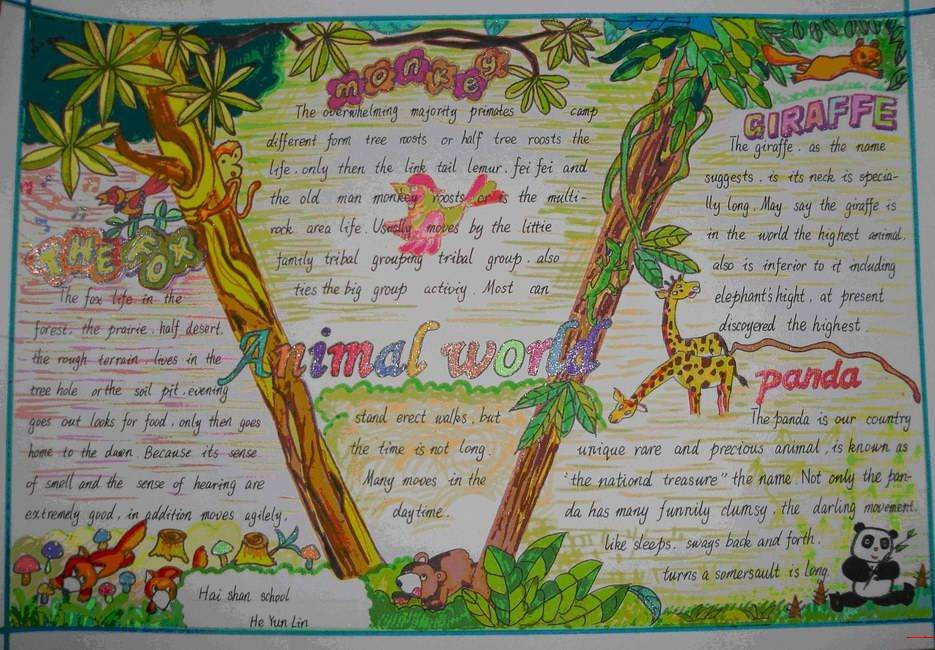 monkey
The overwhelming majority primates camp
different form tree roosts or half tree roosts the
life. only then the link tail lemur. fei fei and
the old man monkey roosts or is the multi-
rock area life. Usually moves by the little
family tribal grouping tribal group. also
ties the big group activiy. Most can
stand erect walks, but
the time is not long.
Many moves in the
daytime.
GIRAFFE
The giraffe. as the name
suggests. is its neck is specia-
lly long. May say the giraffe is
in the world the highest animal.
also is inferior to it including
elephant's hight. at present
discoyered the highest.
THE FOX
The fox life in the
forest. the prairie. half desert.
the rough terrain. lives in the
tree hole or the soil pit. evening
goes out looks for food. only then goes
home to the dawn Because its sense
of smell and the sense of hearing are
extremely good, in addition moves agilely.
Animal world
panda
The panda is our country
unique rare and precious animal, is known as
"the nationd treasure" the name. Not only the pan-
da has many funnily clumsy, the darling movement.
like sleeps. sways back and forth.
turns a somersault is long.
Hai shan school
He Yun Lin